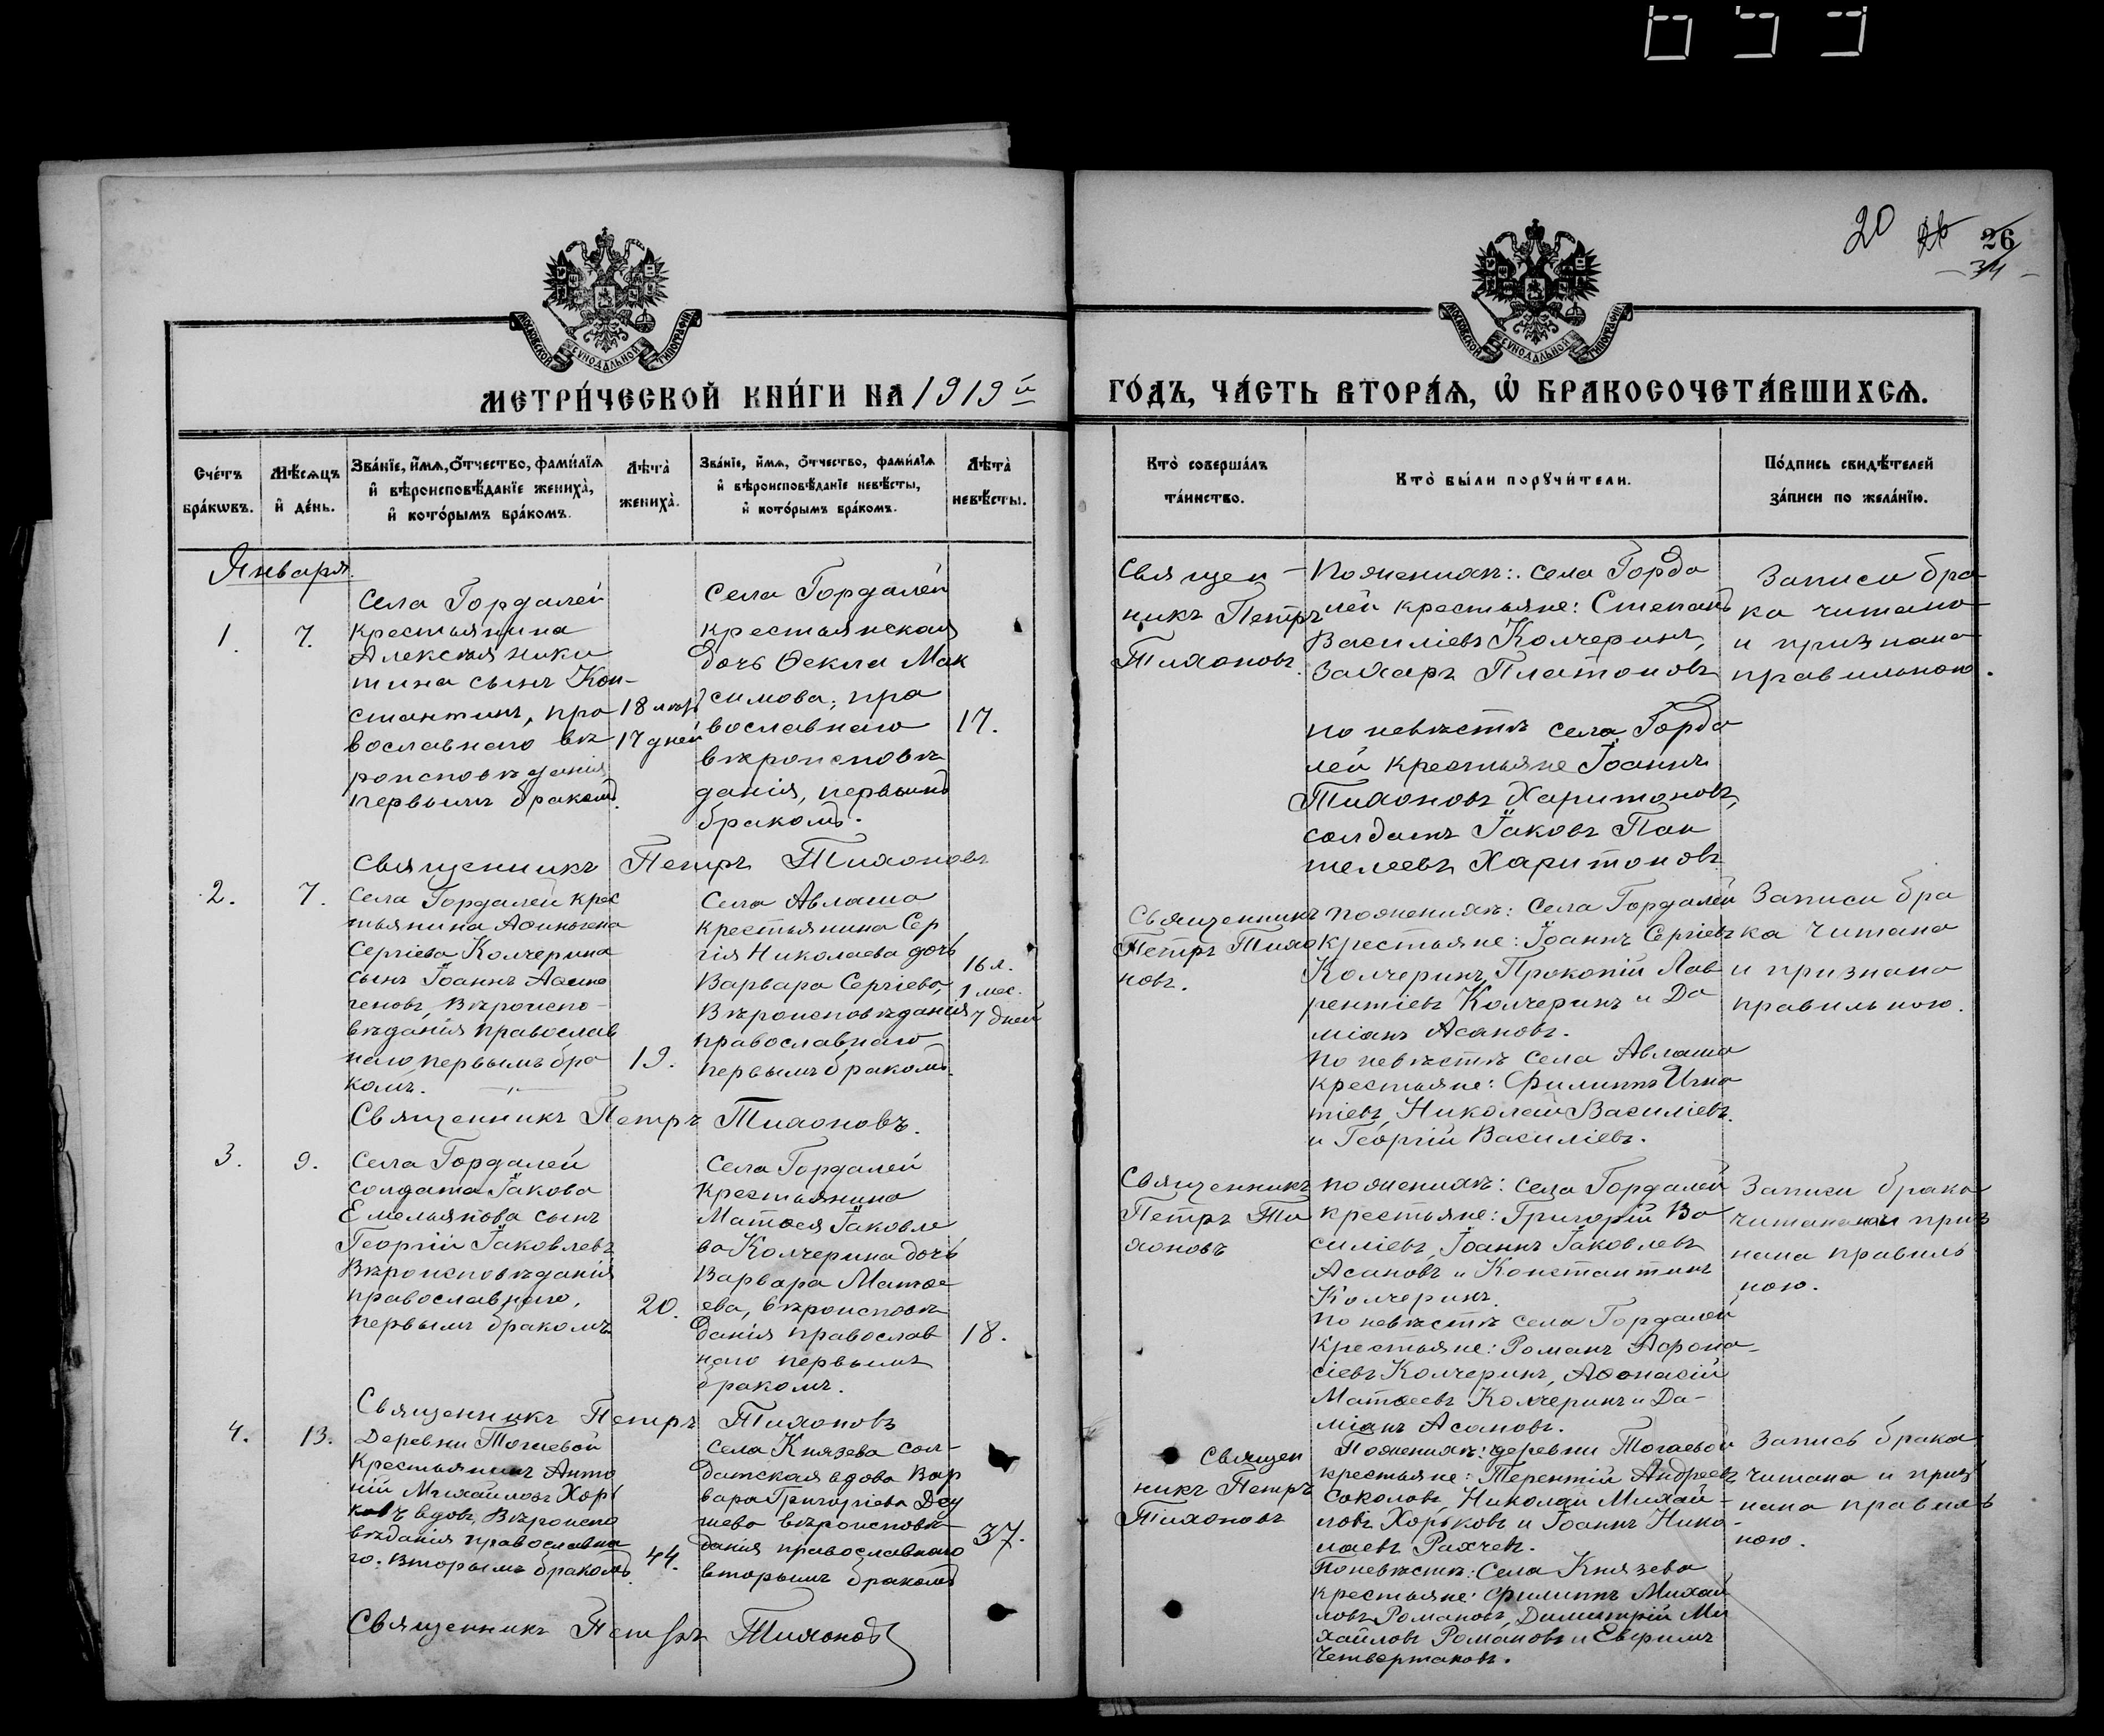 20 26 26
34
МОСКОВСКОЙ СѴНОДАЛЬНОЙ ТИПОГРАФІИ
МОСКОВСКОЙ СѴНОДАЛЬНОЙ ТИПОГРАФІИ
МЕТРИ́ЧЕСКОЙ КНИ́ГИ НА 1919й
ГО́ДЪ, ЧА́СТЬ ВТОРА́Ѧ, Ѽ БРАКОСОЧЕТА́ВШИХСѦ.
Сче́тъ бра́кѡвъ.
Мѣ́сѧцъ и҆ де́нь.
Зва́нїе, и҆́мѧ, ѻ҆́тчество, фами́лїѧ
и҆ вѣроисповѣ́данїе жениха̀,
и҆ кото́рымъ бра́комъ.
Лѣта̀ жениха̀.
Зва́нїе, и҆́мѧ, ѻ҆́тчество, фами́лїѧ
и҆ вѣроисповѣ́данїе невѣ́сты,
и҆ кото́рымъ бра́комъ.
Лѣта̀ невѣ́сты.
Кто̀ соверша́лъ
та́инство.
Кто̀ бы́ли порꙋчи́тели.
По́дпись свидѣ́телей
за́писи по жела́нїю.
Января.
1.
7.
Села Гордалей
крестьянина
Алексѣя Ники
тина сынъ Кон-
стантинъ, пра
вославнаго вѣ
роисповѣданія
первымъ бракомъ.
18 лѣтъ
17 дней
Села Гордалей
крестьянская
дочь Ѳекла Мак
симова, пра
вославнаго
вѣроисповѣ
данія, первымъ
бракомъ.
17.
Священникъ Петръ Тихоновъ
Священ-
никъ Петръ
Тихоновъ.
По женихѣ: села Горда
лей крестьяне: Степанъ
Василіевъ Колчеринъ,
Захаръ Платоновъ
по невѣстѣ села Горда
лей крестьяне Іоаннъ
Тихоновъ Харитоновъ,
солдатъ Іаковъ Пан
телеевъ Харитоновъ
Записи бра
ка читано
и признана
правильною.
2.
7.
Села Гордалей крес
тьянина Аѳиногена
Сергіева Колчерина
сынъ Іоаннъ Аѳино
геновъ, Вѣроиспо-
вѣданія православ
наго первымъ бра
комъ.
19.
Села Авлаша
крестьянина Сер
гія Николаева дочь
Варвара Сергіева,
Вѣроисповѣданія
православнаго
первымъ бракомъ.
16 л.
1 мес.
7 дней
Священникъ Петръ Тихоновъ.
Священникъ
Петръ Тихо
новъ.
по женихѣ: Села Гордалей
крестьяне: Іоаннъ Сергіевъ
Колчеринъ, Прокопій Лав
рентіевъ Колчеринъ и Да
міанъ Асановъ.
по невѣстѣ села Авлаша
крестьяне: Филиппъ Игна
тіевъ, Николай Василіевъ
и Георгій Василіевъ.
Записи бра
ка читано
и признано
правильною.
3.
9.
Села Гордалей
солдата Іакова
Емельянова сынъ
Георгій Іаковлевъ
Вѣроисповѣданія
православнаго,
первымъ бракомъ.
20.
Села Гордалей
крестьянина
Матѳея Іаковле
ва Колчерина дочь
Варвара Матѳе
ева, вѣроисповѣ
данія православ
наго первымъ
бракомъ.
18.
Священникъ Петръ Тихоновъ
Священникъ
Петръ Ти
хоновъ
по женихѣ: села Гордалей
крестьяне: Григорій Ва
силіевъ, Іоаннъ Іаковлевъ
Асановъ и Константинъ
Колчеринъ.
по невѣстѣ села Гордалей
крестьяне: Романъ Аѳона-
сіевъ Колчеринъ, Аѳонасій
Матѳеевъ Колчеринъ и Да-
міанъ Асановъ.
Записи брака
читана и приз
нана правиль
ною.
4.
13.
Деревни Тогаевой
Крестьянинъ Анто
ній Михайловъ Хорь
ковъ вдовъ, Вѣроиспо
вѣданія православна
го. Вторымъ бракомъ.
44.
Села Князева сол-
датская вдова Вар
вара Григоріева
вѣроисповѣ
данія православнаго
вторымъ бракомъ
37.
Священникъ Петръ Тихоновъ
Священ
никъ Петръ
Тихоновъ
По женихѣ: деревни Тогаевой
крестьяне: Терентій Андреевъ
Соколовъ, Николай Михай-
ловъ Хорьковъ и Іоаннъ Нико-
лаевъ Рахчевъ.
По невѣстѣ: Села Князева
крестьяне: Филиппъ Михай
ловъ Романовъ, Димитрій Ми
хайловъ Романовъ и Евфимъ
Четвертаковъ.
Запись брака
читана и приз
нана правиль
ною.